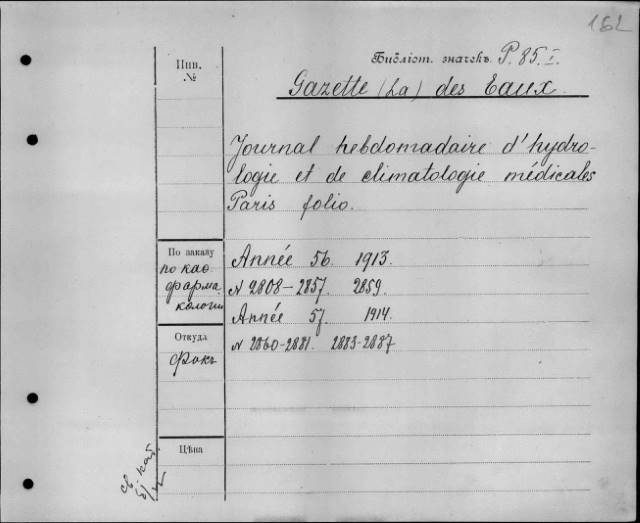 162
Инв. №
Библіот. значекъ P. 85. I.
Gazette (La) des Eaux.
Journal hebdomadaire d'hydro-
logie et de climatologie médicales
Paris folio.
По заказу
по каѳ.
фарма-
кологіи
Année 56. 1913.
N 2808-2857. 2859.
Année 57. 1914.
N 2860-2881. 2883-2887
Откуда
Фокъ
Цѣна